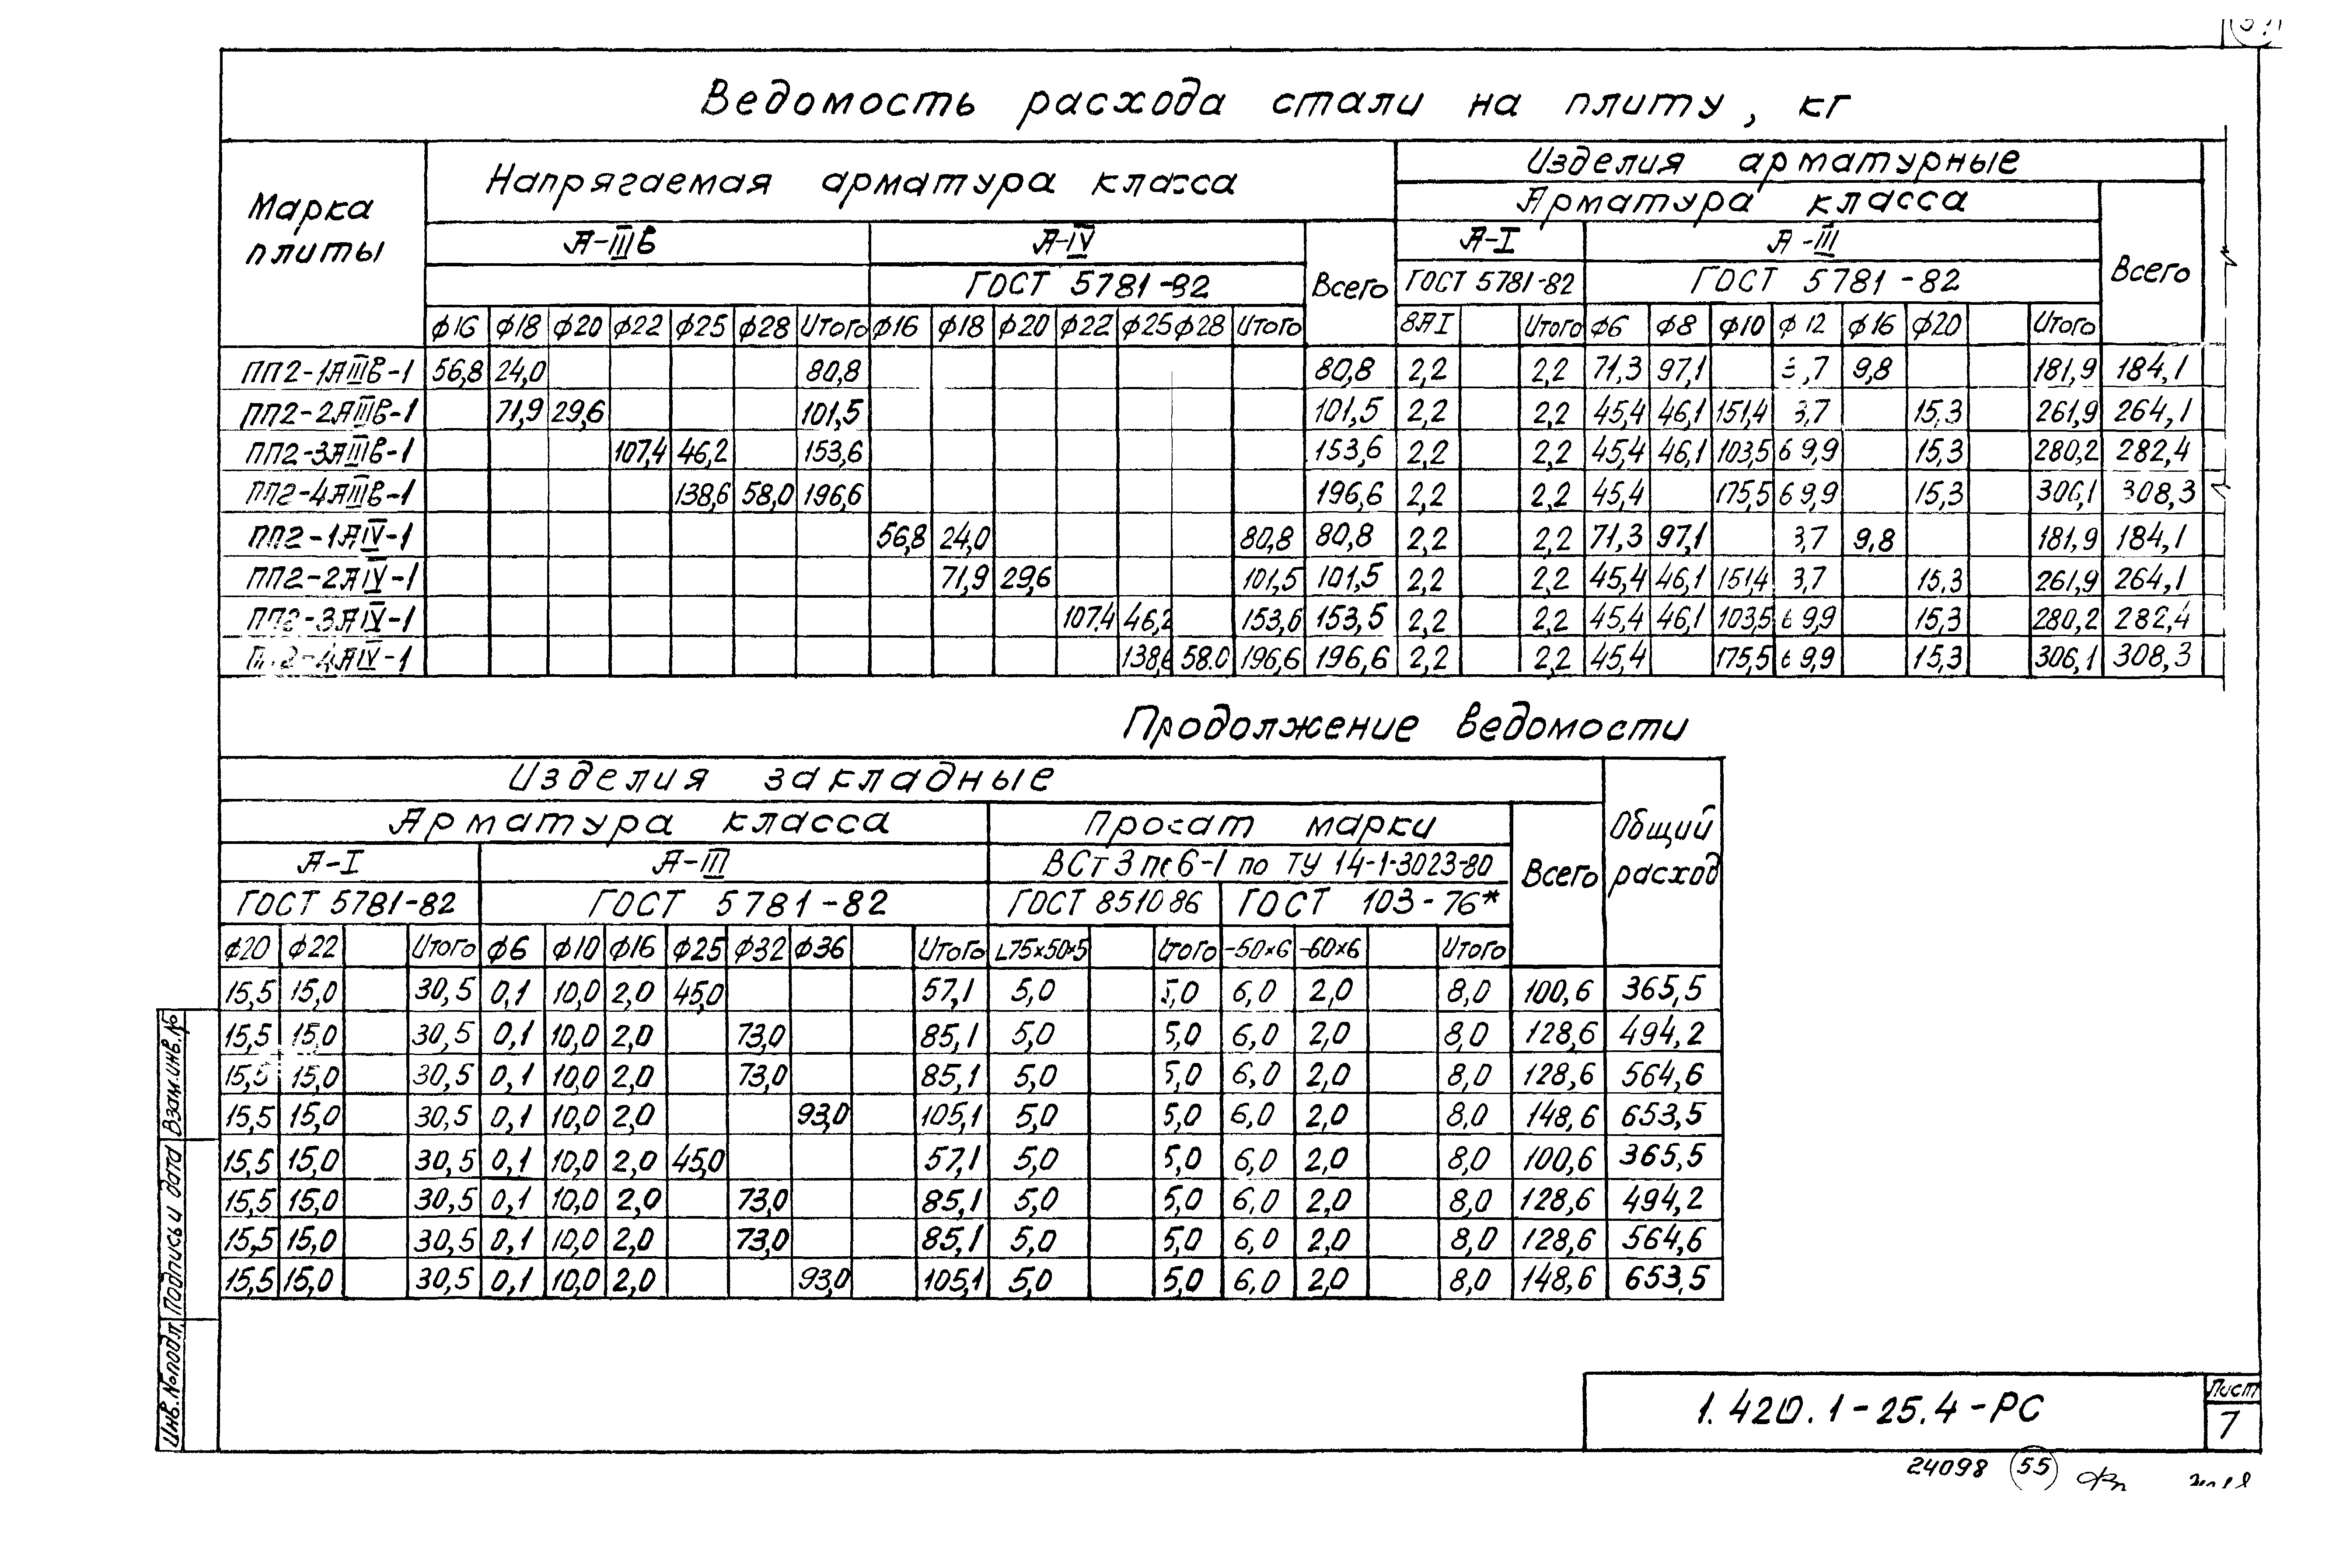 Ведомость расхода стали на плиту, кг
Марка плиты
Напрягаемая арматура класса
Изделия арматурные
Арматура класса
А-IIIв А-IV Всего А-I А-III Всего
ГОСТ 5781-82 ГОСТ 5781-82 ГОСТ 5781-82
ф16 ф18 ф20 ф22 ф25 ф28 Итого ф16 ф18 ф20 ф22 ф25 ф28 Итого 8АI Итого ф6 ф8 ф10 ф12 ф16 ф20 Итого
ПП2-1АIIIв-1 56,8 24,0 80,8 80,8 2,2 2,2 71,3 97,1 3,7 9,8 181,9 184,1
ПП2-2АIIIв-1 71,9 29,6 101,5 101,5 2,2 2,2 45,4 46,1 151,4 3,7 15,3 261,9 264,1
ПП2-3АIIIв-1 107,4 46,2 153,6 153,6 2,2 2,2 45,4 46,1 103,5 69,9 15,3 280,2 282,4
ПП2-4АIIIв-1 138,6 58,0 196,6 196,6 2,2 2,2 45,4 175,5 69,9 15,3 306,1 308,3
ПП2-1АIV-1 56,8 24,0 80,8 80,8 2,2 2,2 71,3 97,1 3,7 9,8 181,9 184,1
ПП2-2АIV-1 71,9 29,6 101,5 101,5 2,2 2,2 45,4 46,1 151,4 3,7 15,3 261,9 264,1
ПП2-3АIV-1 107,4 46,2 153,6 153,5 2,2 2,2 45,4 46,1 103,5 69,9 15,3 280,2 282,4
ПП2-4АIV-1 138,6 58.0 196,6 196,6 2,2 2,2 45,4 175,5 69,9 15,3 306,1 308,3
Продолжение ведомости
Изделия закладные
Общий расход
Арматура класса Прокат марки Всего
А-I А-III ВСт3пс6-1 по ТУ 14-1-3023-80
ГОСТ 5781-82 ГОСТ 5781-82 ГОСТ 8510 86 ГОСТ 103-76*
ф20 ф22 Итого ф6 ф10 ф16 ф25 ф32 ф36 Итого L75×50×5 Итого -50×6 -60×6 Итого
15,5 15,0 30,5 0,1 10,0 2,0 45,0 57,1 5,0 5,0 6,0 2,0 8,0 100,6 365,5
15,5 15,0 30,5 0,1 10,0 2,0 73,0 85,1 5,0 5,0 6,0 2,0 8,0 128,6 494,2
15,5 15,0 30,5 0,1 10,0 2,0 73,0 85,1 5,0 5,0 6,0 2,0 8,0 128,6 564,6
15,5 15,0 30,5 0,1 10,0 2,0 93,0 105,1 5,0 5,0 6,0 2,0 8,0 148,6 653,5
15,5 15,0 30,5 0,1 10,0 2,0 45,0 57,1 5,0 5,0 6,0 2,0 8,0 100,6 365,5
15,5 15,0 30,5 0,1 10,0 2,0 73,0 85,1 5,0 5,0 6,0 2,0 8,0 128,6 494,2
15,5 15,0 30,5 0,1 10,0 2,0 73,0 85,1 5,0 5,0 6,0 2,0 8,0 128,6 564,6
15,5 15,0 30,5 0,1 10,0 2,0 93,0 105,1 5,0 5,0 6,0 2,0 8,0 148,6 653,5
Инв.№подл. Подпись и дата Взам.инв.№
1.420.1-25.4-РС
Лист
7
24098 55